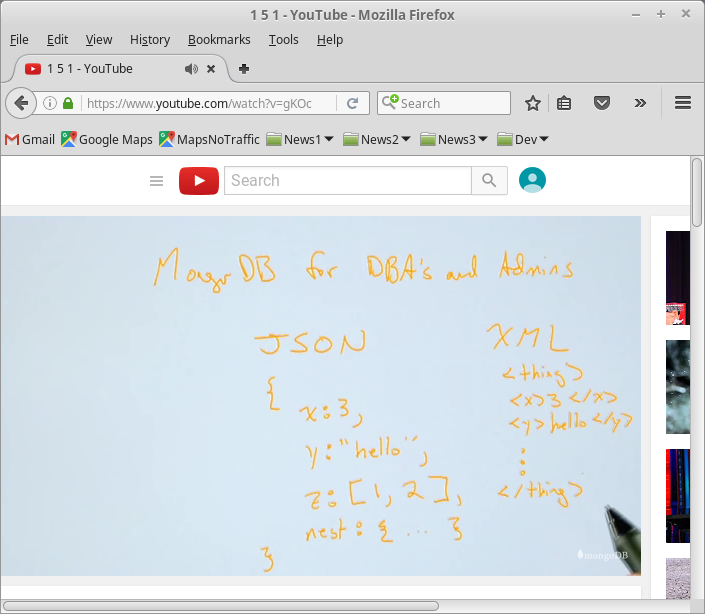 1 5 1 - YouTube - Mozilla Firefox
File Edit View History Bookmarks Tools Help
1 5 1 - YouTube
https://www.youtube.com/watch?v=gKOc
Search
Gmail Google Maps MapsNoTraffic News1 News2 News3 Dev
Search
MongoDB for DBA's and Admins
JSON
XML
{
x:3,
y:"hello",
z:[1,2],
nest:{...}
}
<thing>
<x>3</x>
<y>hello</y>
:
</thing>
mongoDB